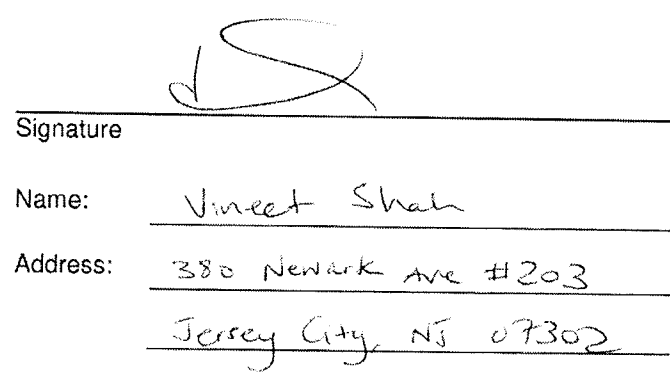 Signature
Name: Vineet Shah
Address: 380 Newark Ave #203
Jersey City, NJ 07302